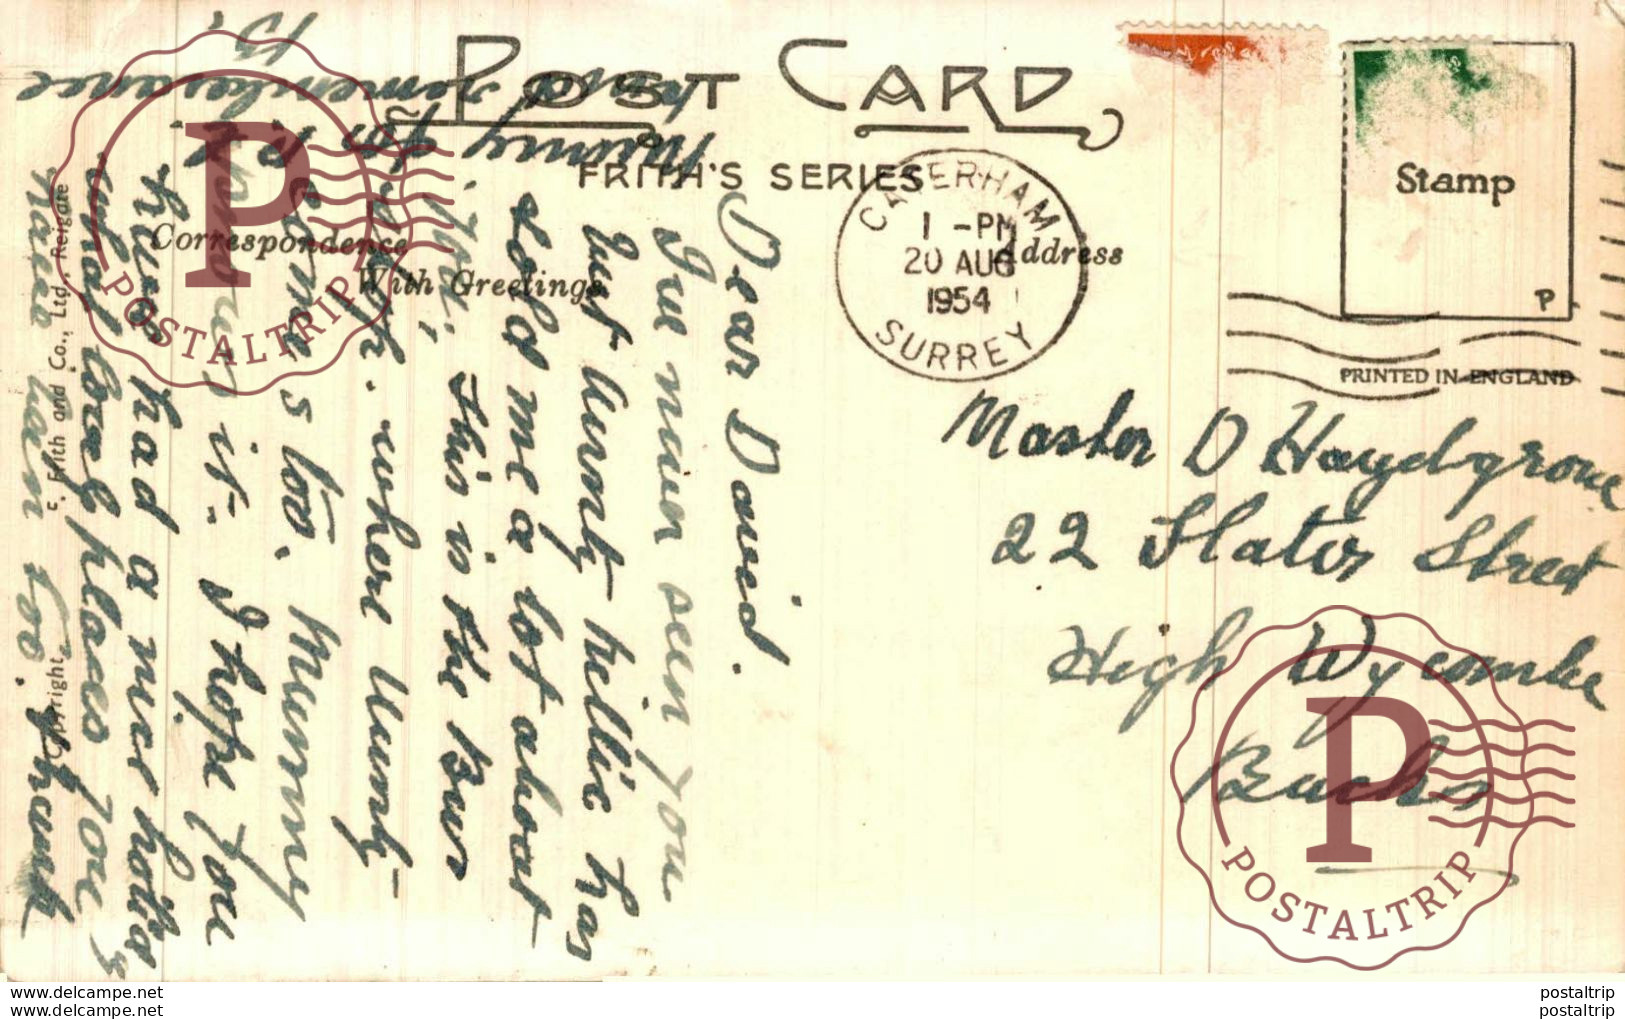 POST CARD
FRITH'S SERIES
Correspondence
With Greetings.
Address
Stamp
P
PRINTED IN ENGLAND
CATERHAM
1 - PM
20 AUG
1954
SURREY
Master D Haydgrove
22 Slater Street
High Wycombe
Bucks
Dear David.
I've niver sein you
but Aunty hellie has
told me a lot about
you, this is the Bus
where Aunty
comes too. Mummy
knows it. I hope you
have had a nice holiday
what loval places you
have been too. thank
Mumy for
remembrance
Copyright F. Frith and Co., Ltd. Reigate
P
POSTALTRIP
P
POSTALTRIP
www.delcampe.net
www.delcampe.net
postaltrip
postaltrip